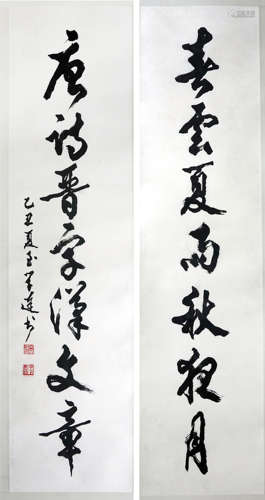 春雲夏雨秋夜月
唐詩晉字漢文章
乙丑夏